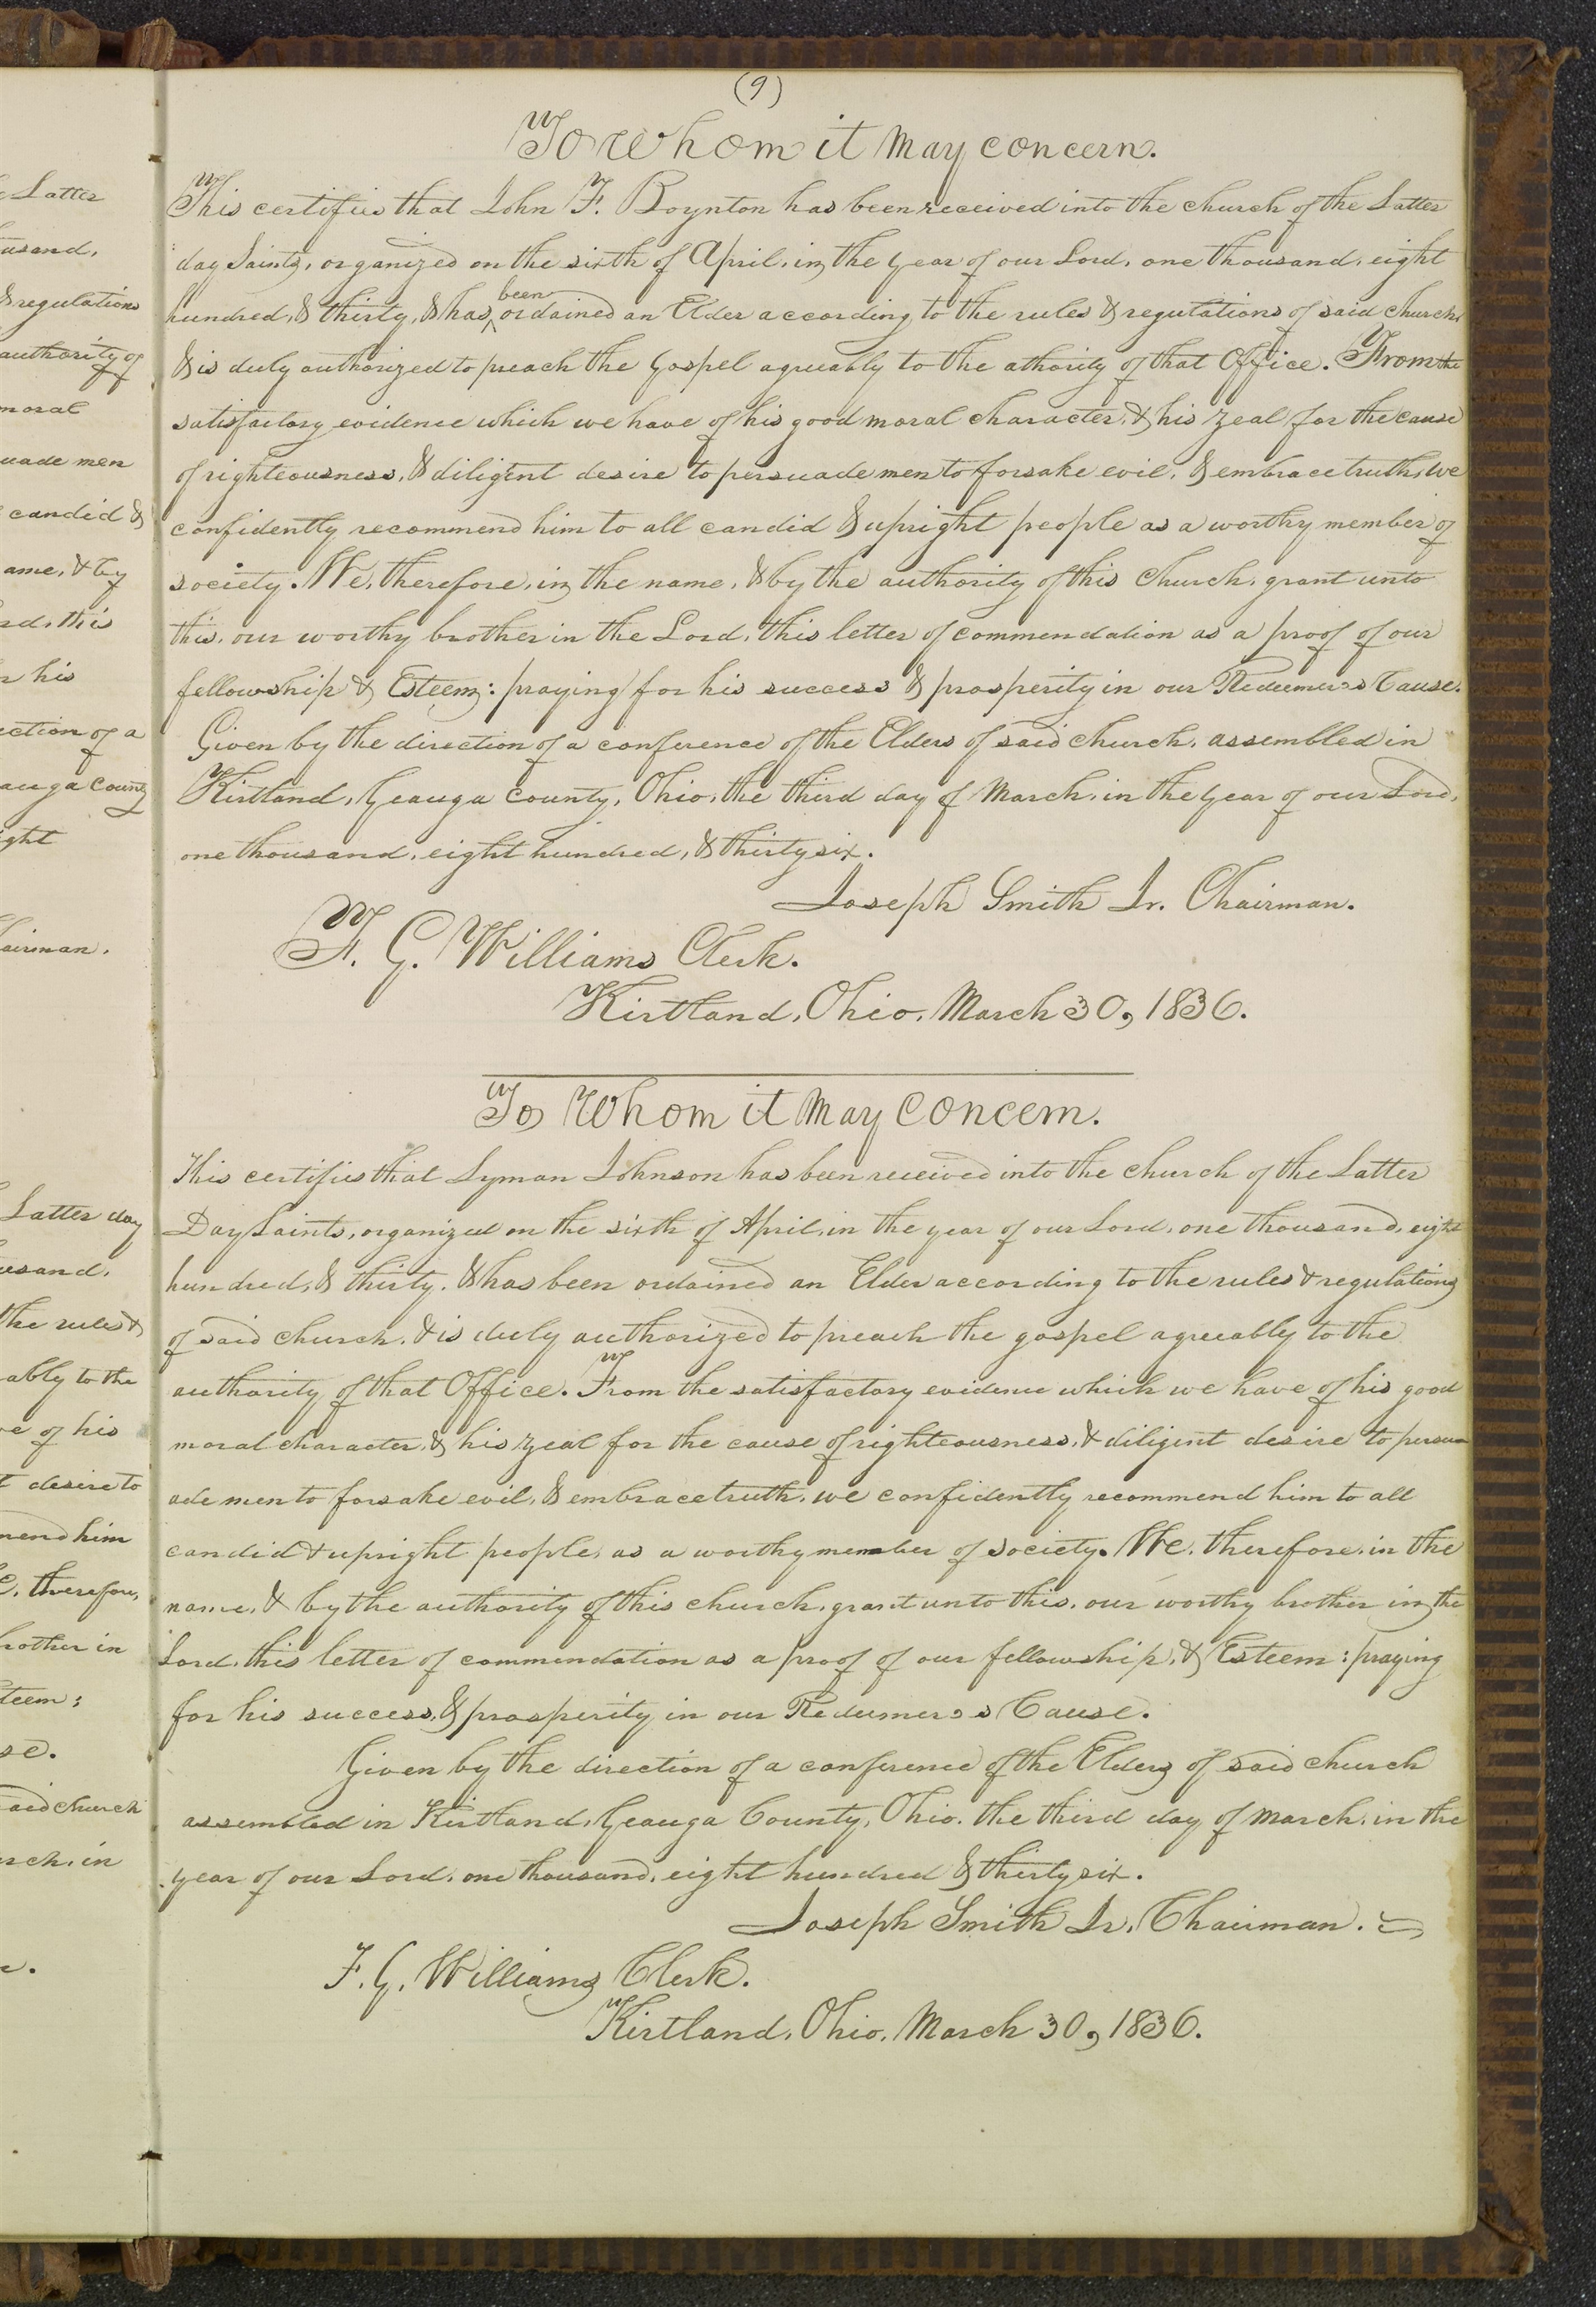 (9)
To Whom it May concern.
This certifies that John F. Boynton has been received into the church of the Latter
day Saints, organized on the sixth of April, in the year of our Lord, one thousand, eight
hundred, & thirty, & has been ordained an Elder according to the rules & regulations of said church
& is duly authorized to preach the Gospel agreeably to the athority of that Office. From the
satisfactory evidence which we have of his good moral character, & his zeal for the cause
of righteousness, & diligent desire to persuade men to forsake evil, & embrace truth, we
confidently recommend him to all candid & upright people as a worthy member of
society. We, therefore, in the name, & by the authority of this church, grant unto
this, our worthy brother in the Lord, this letter of commendation as a proof of our
fellowship & Esteem: praying for his success & prosperity in our Redeemer's Cause.
Given by the direction of a conference of the Elders of said church, assembled in
Kirtland, Geauga County, Ohio, the third day of March, in the year of our Lord,
one thousand, eight hundred, & thirty six.
Joseph Smith Jr. Chairman.
F. G. Williams Clerk.
Kirtland, Ohio, March 30, 1836.
To Whom it May Concern.
This certifies that Lyman Johnson has been received into the church of the Latter
Day Saints, organized on the sixth of April, in the year of our Lord, one thousand, eight
hundred, & thirty, & has been ordained an Elder according to the rules & regulations
of said church, & is duly authorized to preach the gospel agreeably to the
authority of that Office. From the satisfactory evidence which we have of his good
moral character, & his zeal for the cause of righteousness, & diligent desire to persu
ade men to forsake evil, & embrace truth, we confidently recommend him to all
candid & upright people, as a worthy member of society. We, therefore, in the
name, & by the authority of this church, grant unto this, our worthy brother in the
Lord, this letter of commendation as a proof of our fellowship, & Esteem: praying
for his success, & prosperity in our Redeemer's Cause.
Given by the direction of a conference of the Elders of said church
assembled in Kirtland, Geauga County, Ohio, the third day of March, in the
year of our Lord, one thousand, eight hundred & thirty six.
Joseph Smith Jr. Chairman.
F. G. Williams Clerk.
Kirtland, Ohio, March 30, 1836.